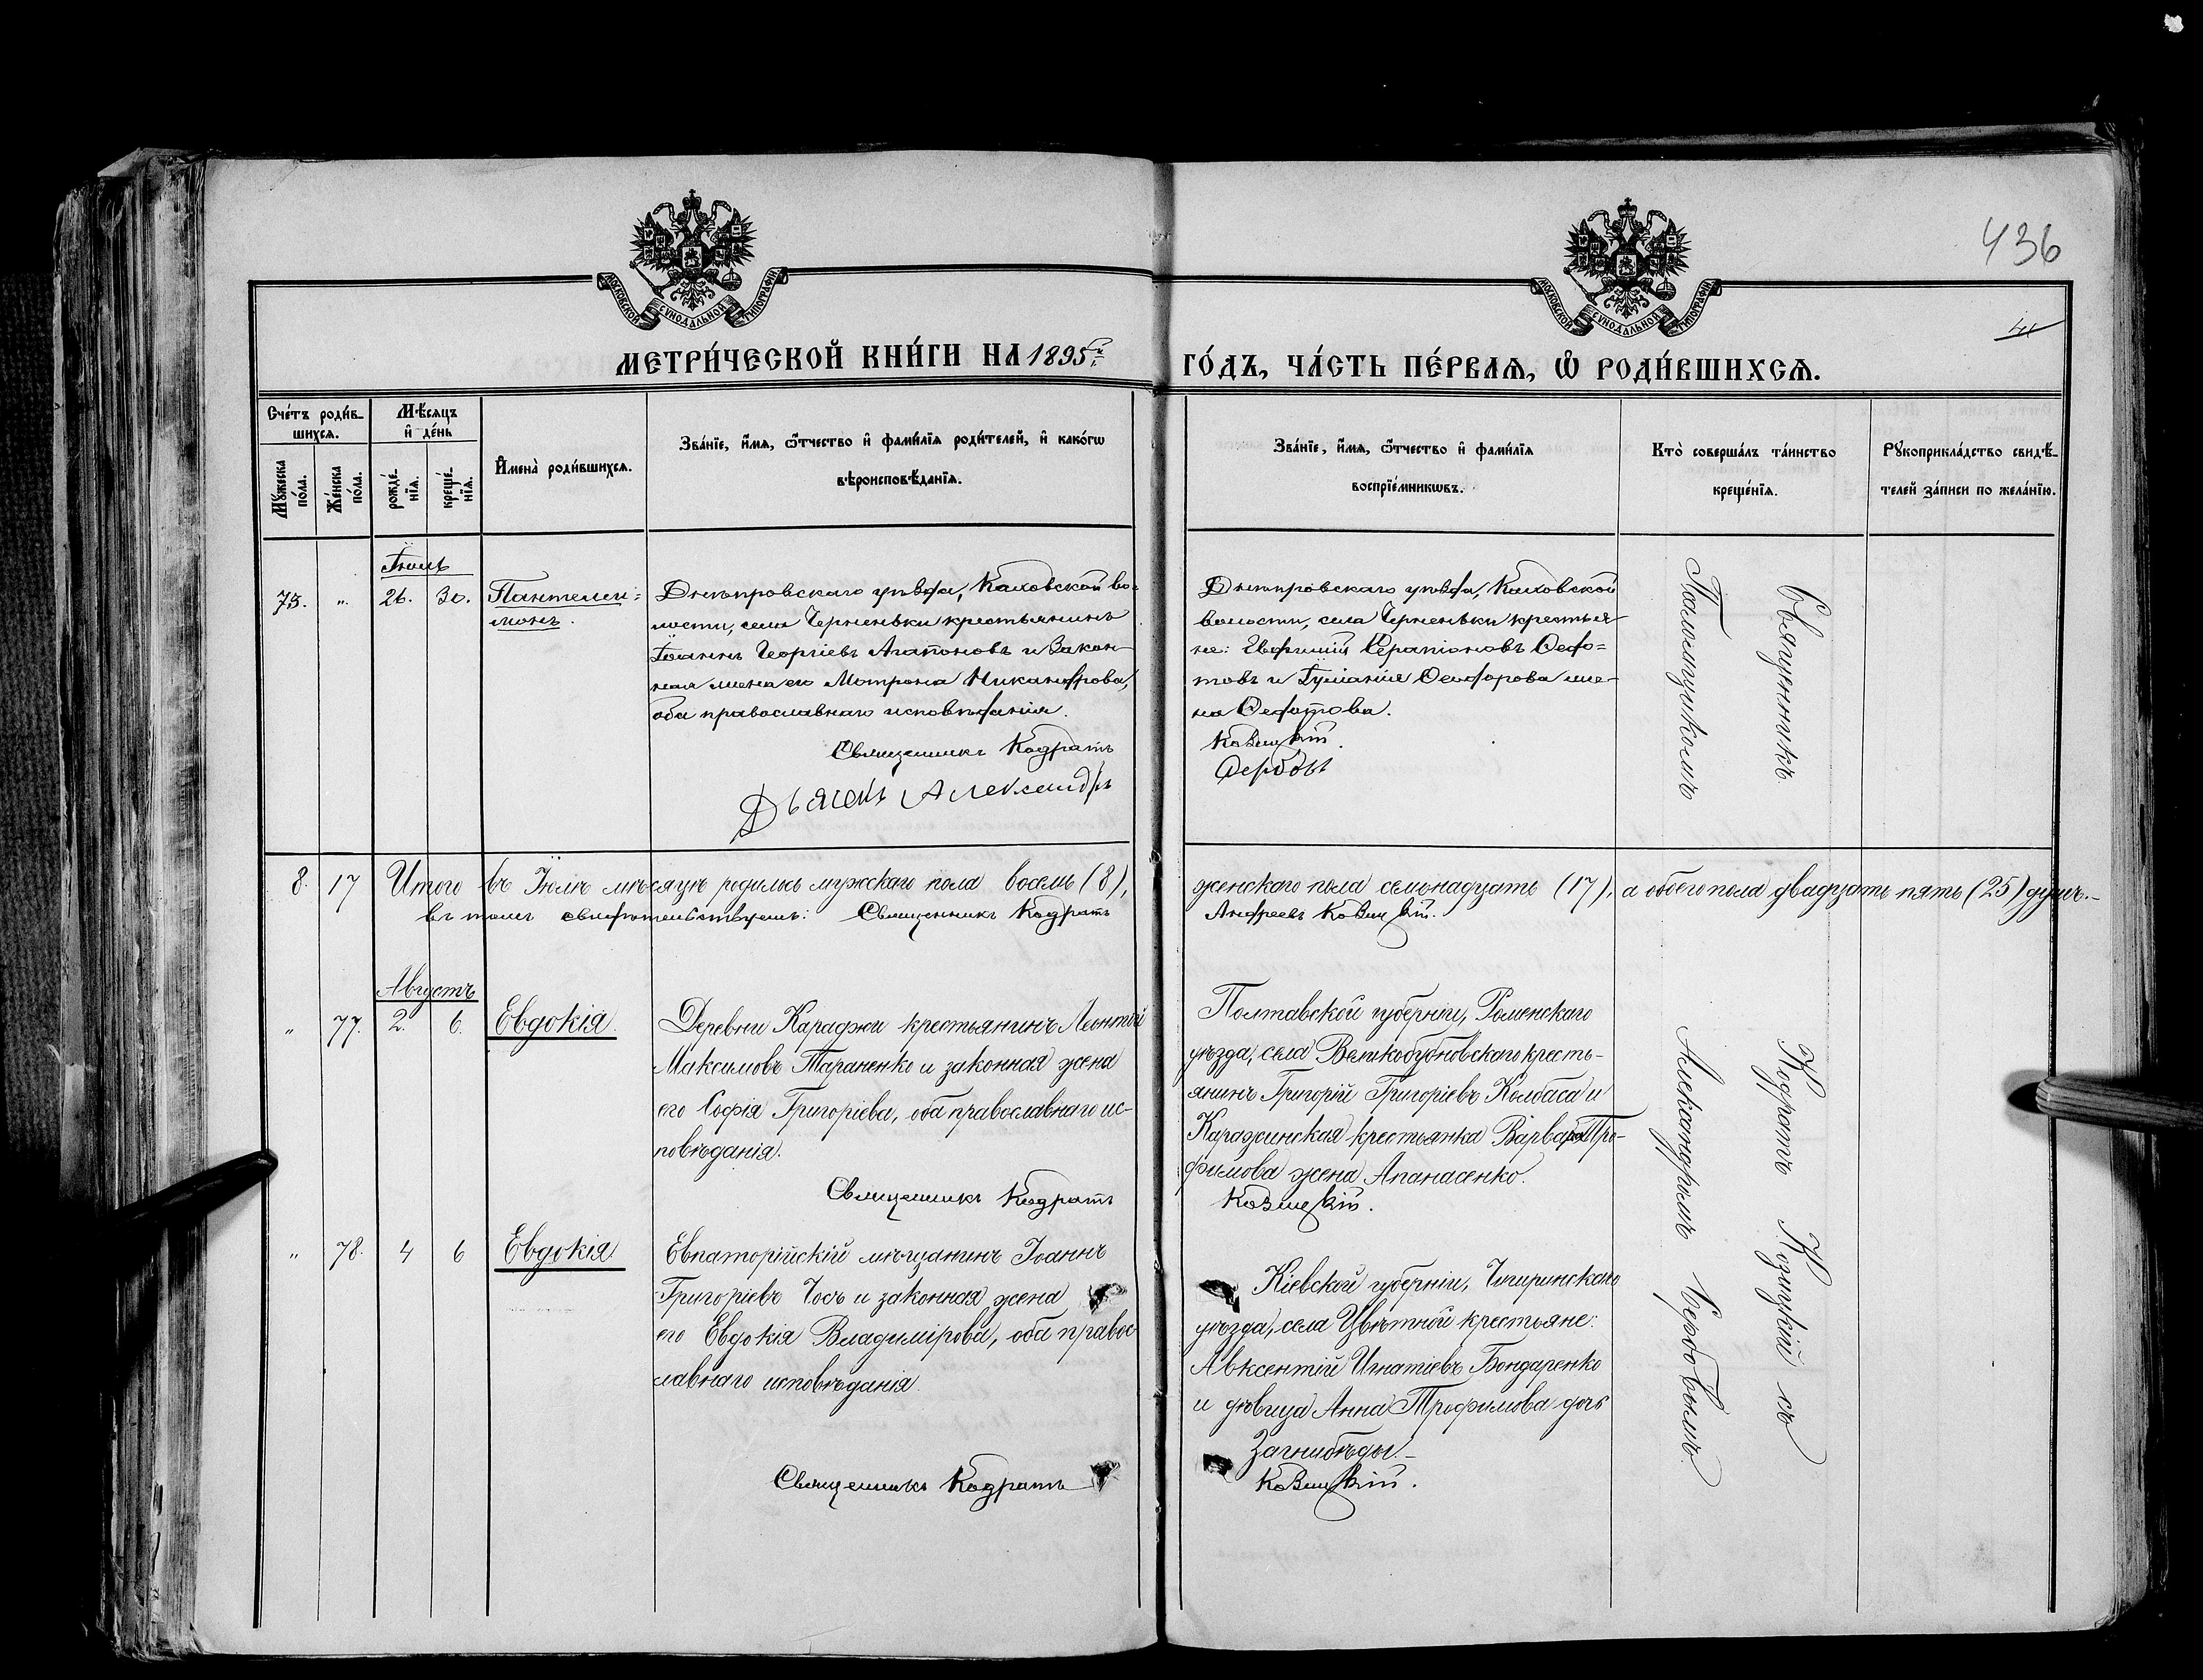 436
41
МЕТРИ́ЧЕСКОЙ КНИ́ГИ НА 1895й ГО́ДЪ, ЧА́СТЬ ПЕ́РВАЯ, Ѡ РОДИ́ВШИХСЯ.
Сче́тъ роди́в-
шихся.
Мꙋ́жеска по́ла.
Же́нска по́ла.
Мѣ́сяцъ
и де́нь
рожде́-
нїя.
креще́-
нїя.
И҆мена̀ роди́вшихся.
Зва́нїе, и҆́мя, ѻ҆́тчество и҆ фами́лїя роди́телей, и҆ како́гѡ
вѣроисповѣ́данїя.
Зва́нїе, и҆́мя, ѻ҆́тчество и҆ фами́лїя
воспрїе́мникѡвъ.
Кто̀ соверша́лъ та́инство
креще́нїя.
Рꙋкоприкла́дство свидѣ́-
телей за́писи по жела́нїю.
Іюль
75. " 26. 30. Пантелеи-
монъ.
Днѣпровскаго уѣзда, Каховской во-
лости, села Черненьки крестьянинъ
Іоаннъ Георгіевъ Агапоновъ и закон-
ная жена его Мотрона Никандрова,
оба православнаго исповѣданія.
Священникъ Кодратъ
Дьяконъ Александръ
Днѣпровскаго уѣзда, Каховской
волости, села Черненьки крестья-
не: Евфимій Серапіоновъ Федо-
товъ и Іуліанія Феодорова же-
на Федотова.
Козицкій.
Сербовъ
Священникъ
Паломщикомъ
8. 17 Итого въ Іюлѣ мѣсяцѣ родилось мужскаго пола восемь (8), женскаго пола семьнадцать (17), а обоего пола двадцать пять (25) душъ.-
въ томъ свидѣтельствуемъ: Священникъ Кодратъ Андреевъ Козицкій.
Августъ
" 77. 2. 6. Евдокія.
Деревни Караджи крестьянинъ Леонтій
Максимовъ Тараненко и законная жена
его Софія Григоріева, оба православнаго ис-
повѣданія.
Священникъ Кодратъ
Полтавской губерніи, Роменскаго
уѣзда, села Великобубновскаго кресть-
янинъ Григорій Григоріевъ Колбаса и
Караджинская крестьянка Варвара Тро-
фимова жена Апанасенко.
Козицкій.
Кодратъ Козицкій съ
Александромъ Сербовымъ.
" 78. 4 6 Евдокія
Евпаторійскій мѣщанинъ Іоаннъ
Григоріевъ Чосъ и законная жена
его Евдокія Владимірова, оба правос
лавнаго исповѣданія.
Священникъ Кодратъ
Кіевской губерніи, Чигиринскаго
уѣзда, села Цвѣтной крестьяне:
Авксентій Игнатіевъ Бондаренко
и дѣвица Анна Трофимова дочь
Загнибѣды.-
Козицкій.